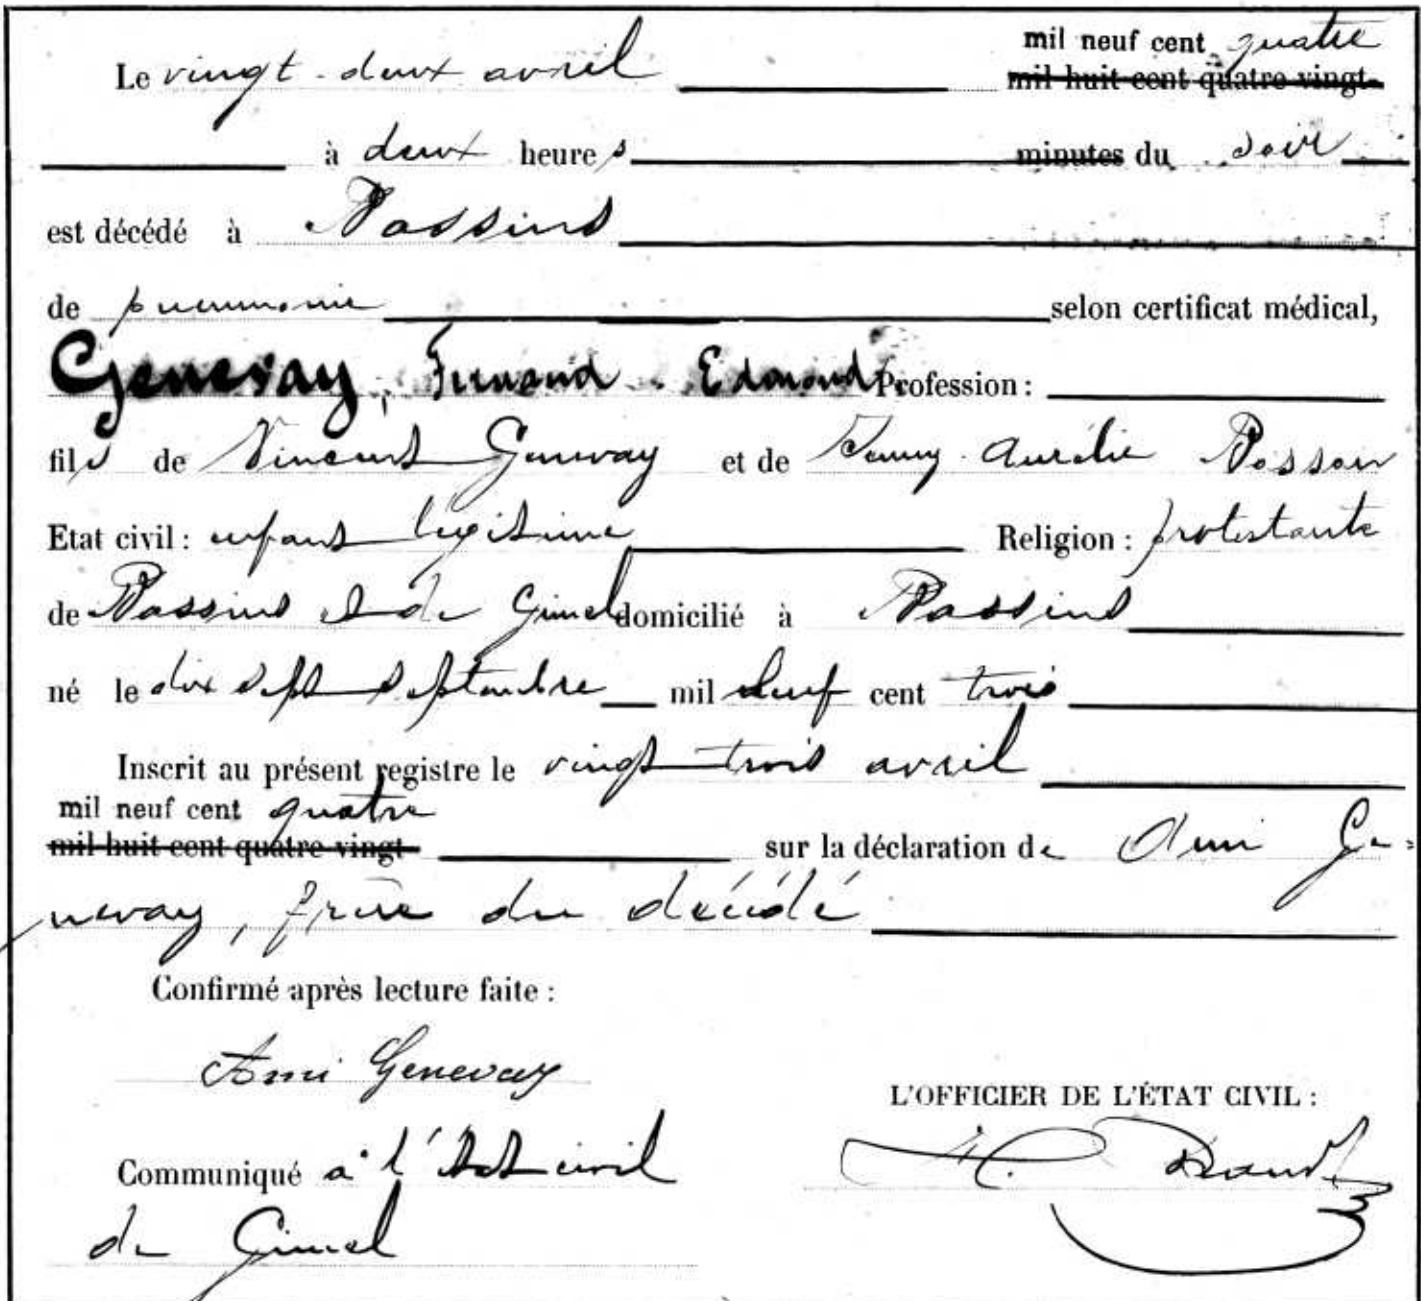 mil neuf cent quatre
Le vingt-deux avril mil huit cent quatre-vingt-
à deux heures minutes du soir
est décédé à Bassins
de pneumonie selon certificat médical,
Genevay, Fernand-Edmond Profession :
fils de Vincent Genevay et de Jenny-Aurélie
Etat civil : enfant légitime Religion : protestante
de Bassins et de Gimel domicilié à Bassins
né le dix sept septembre mil neuf cent trois
Inscrit au présent registre le vingt-trois avril
mil neuf cent quatre
mil huit cent quatre-vingt- sur la déclaration de Ami Ge-
nevay, frère du décédé
Confirmé après lecture faite :
Ami Genevay
L'OFFICIER DE L'ÉTAT CIVIL :
Communiqué à l'Etat civil
de Gimel